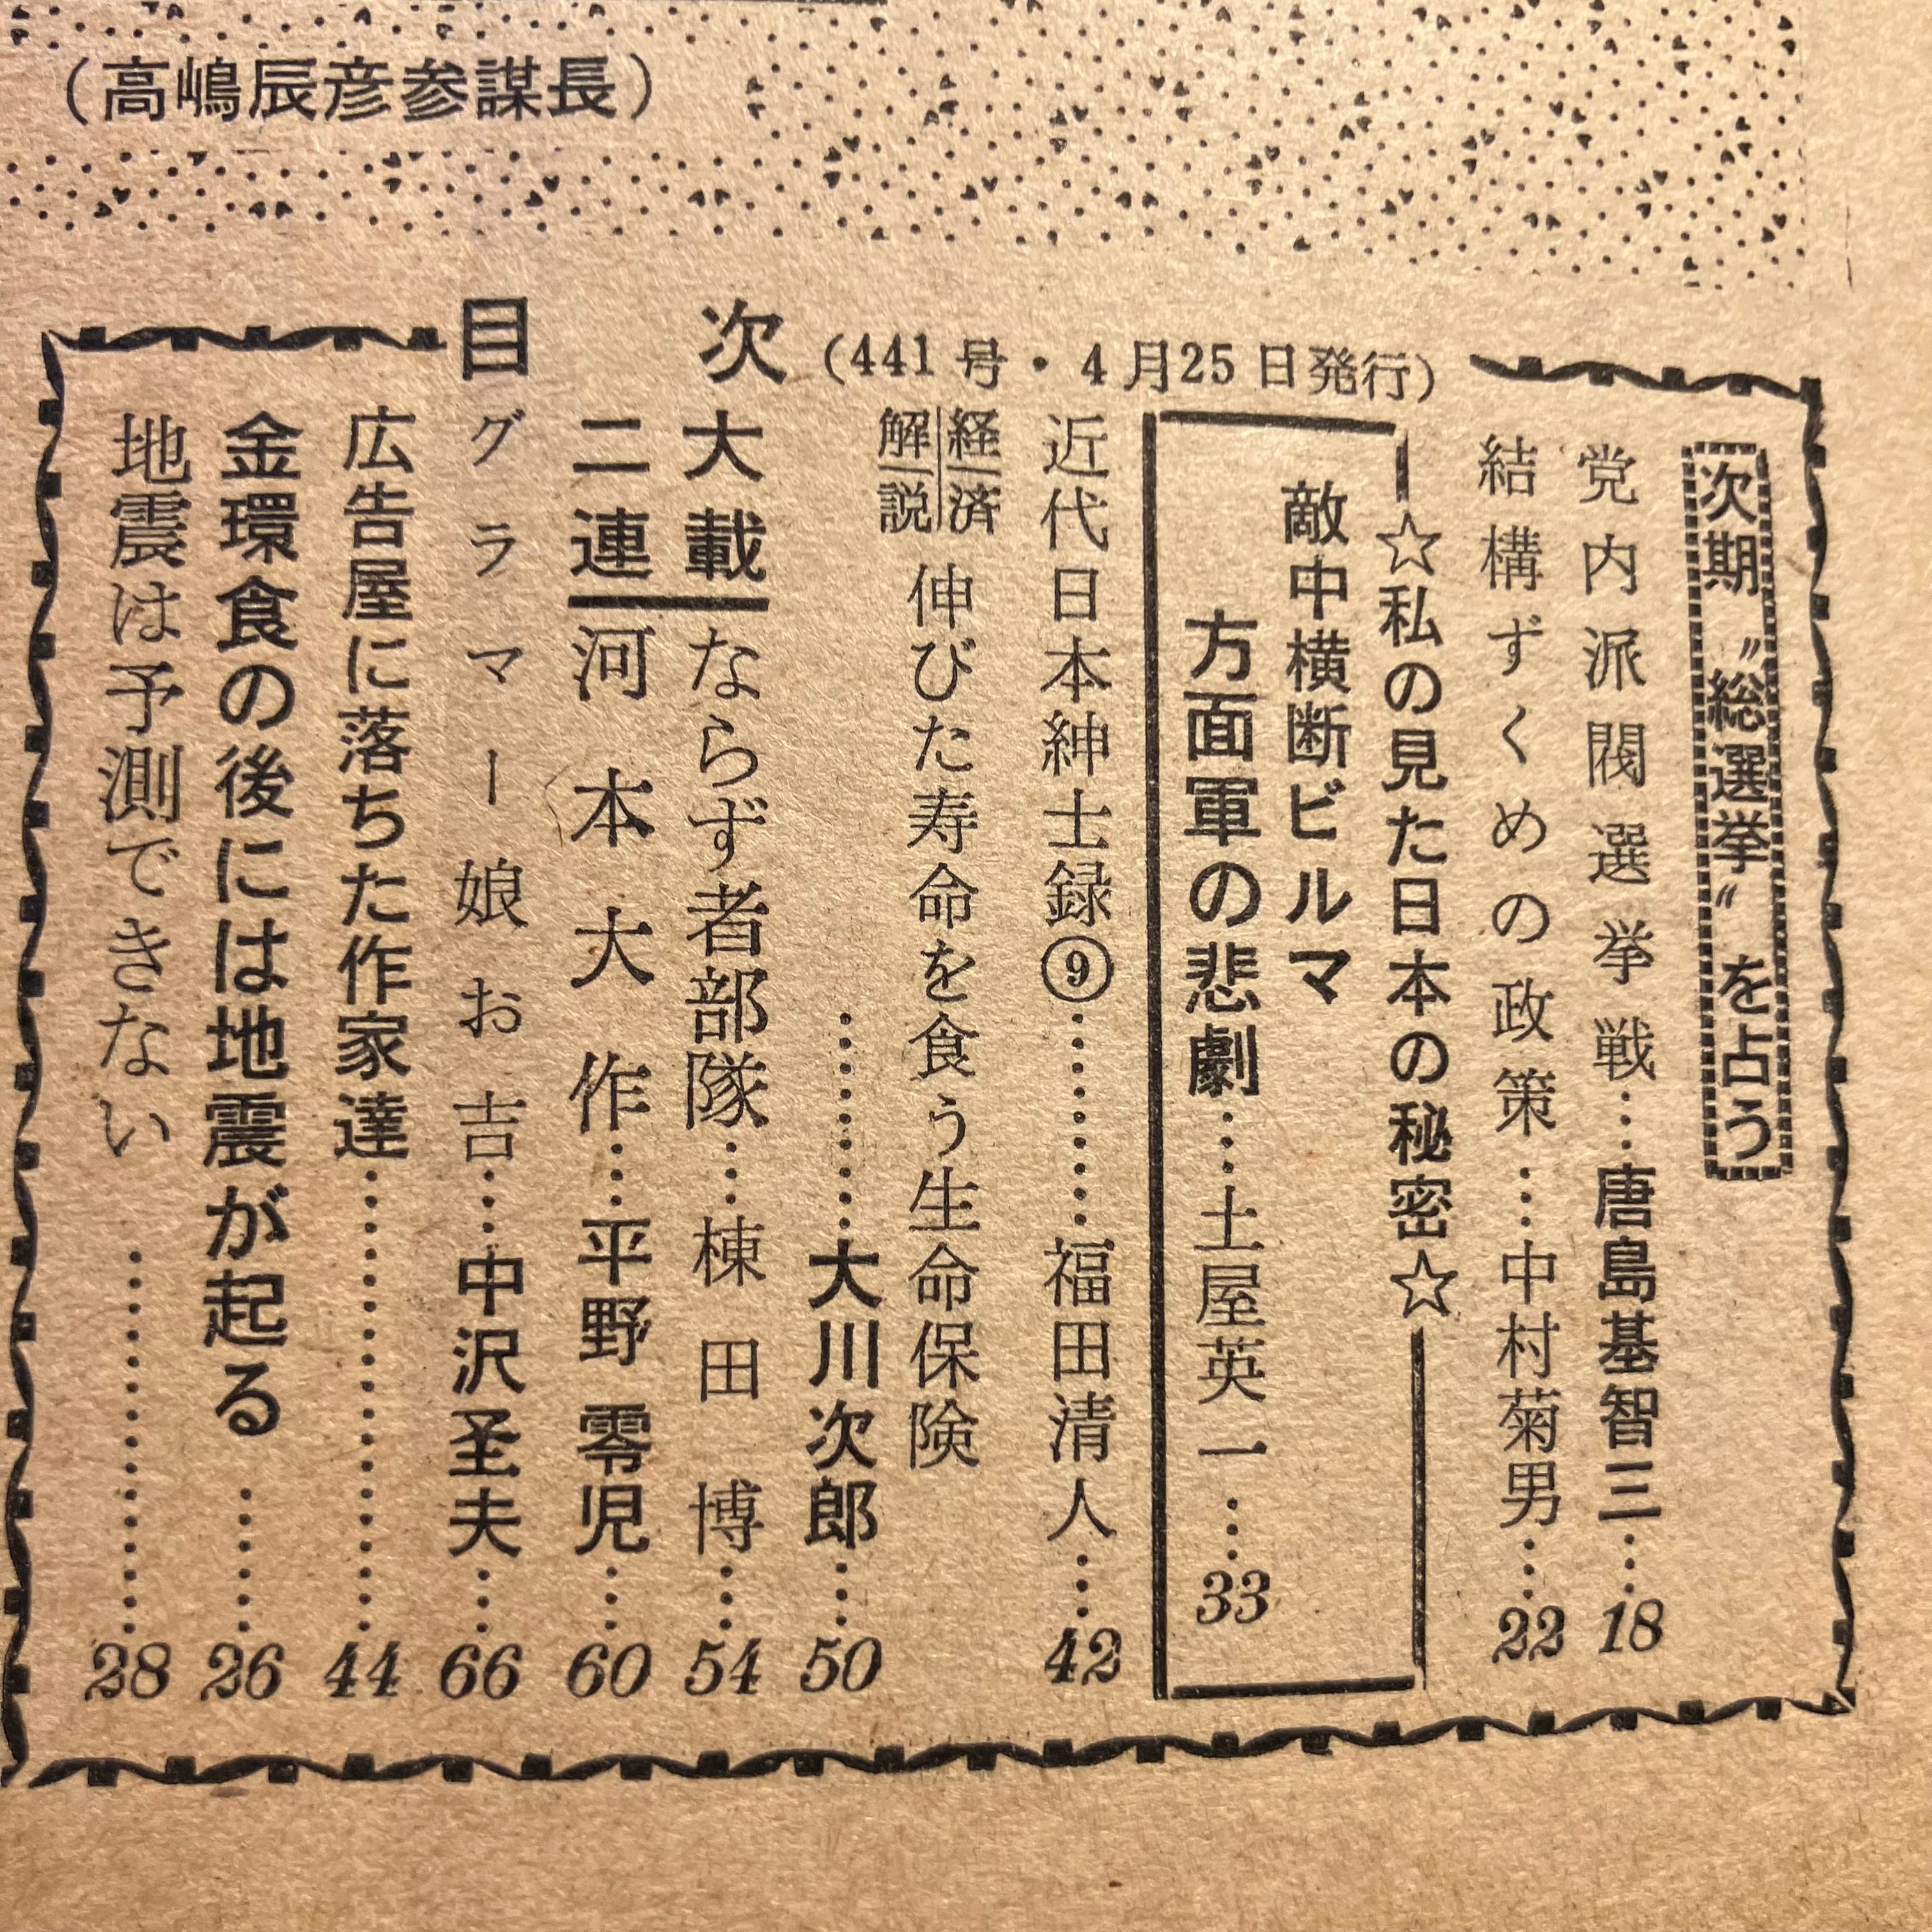 （高嶋辰彦参謀長）
目次（441号・4月25日発行）
次期〝総選挙〟を占う
党内派閥選挙戦…唐島基智三…18
結構ずくめの政策…中村菊男…22
☆私の見た日本の秘密☆
敵中横断ビルマ
方面軍の悲劇……土屋英一…33
近代日本紳士録⑨………福田清人…42
経済解説
伸びた寿命を食う生命保険
………大川次郎…50
二大連載
ならず者部隊…棟田博…54
河本大作…平野零児…60
グラマー娘お吉…中沢圣夫…66
広告屋に落ちた作家達………………44
金環食の後には地震が起る……26
地震は予測できない………………28